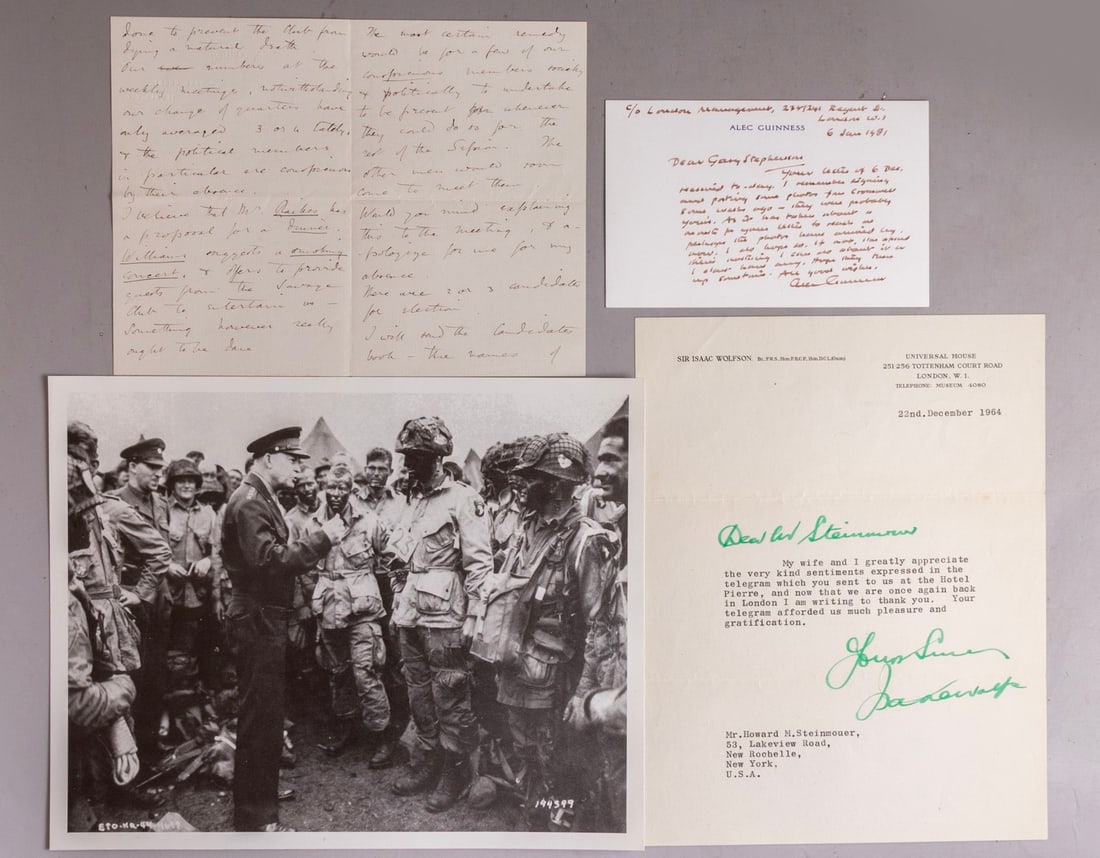 done to prevent the Club from
dying a natural death.
Our numbers at the
weekly meetings, notwithstanding
our change of quarters have
only averaged 3 or 4 lately,
& the political members
in particular are conspicuous
by their absence.
I believe that Mr. has
a proposal for a Dinner.
Williams suggests a smoking
concert, & offers to provide
guests from the Savage
Club to entertain us —
Something however really
ought to be done
The most certain remedy
would be for a few of our
conspicuous members socially
& politically to undertake
to be present wherever
they could do so for the
rest of the Session. The
other men would soon
come to meet them
Would you mind explaining
this to the meeting, & a-
pologize for me for my
absence
There are 2 or 3 candidates
for election.
I will send the Candidates
book — the names of
C/o London Management, 235/241 Regent St.
London W.1
ALEC GUINNESS
6 Jan 1981
Dear Gary Stephenson
Your letter of 6 Dec.
received to-day. I remember signing
and posting some photos for Cornwall
some weeks ago — they were probably
yours. As it has taken about a
month for your letter to reach me
perhaps the photos have arrived by
now. I do hope so. If not, I'm afraid
there's nothing I can do about it as
Alec Guinness
SIR ISAAC WOLFSON, Bt., F.R.S., Hon.F.R.C.P., Hon.D.C.L.(Oxon)
UNIVERSAL HOUSE
251-256 TOTTENHAM COURT ROAD
LONDON, W. 1.
TELEPHONE: MUSEUM 4080
22nd.December 1964
Dear Mr Steinmouer
My wife and I greatly appreciate
the very kind sentiments expressed in the
telegram which you sent to us at the Hotel
Pierre, and now that we are once again back
in London I am writing to thank you. Your
telegram afforded us much pleasure and
gratification.
Yours Sincerely
Isaac Wolfson
Mr.Howard M.Steinmouer,
53, Lakeview Road,
New Rochelle,
New York,
U.S.A.
194399
ETO-HQ-44